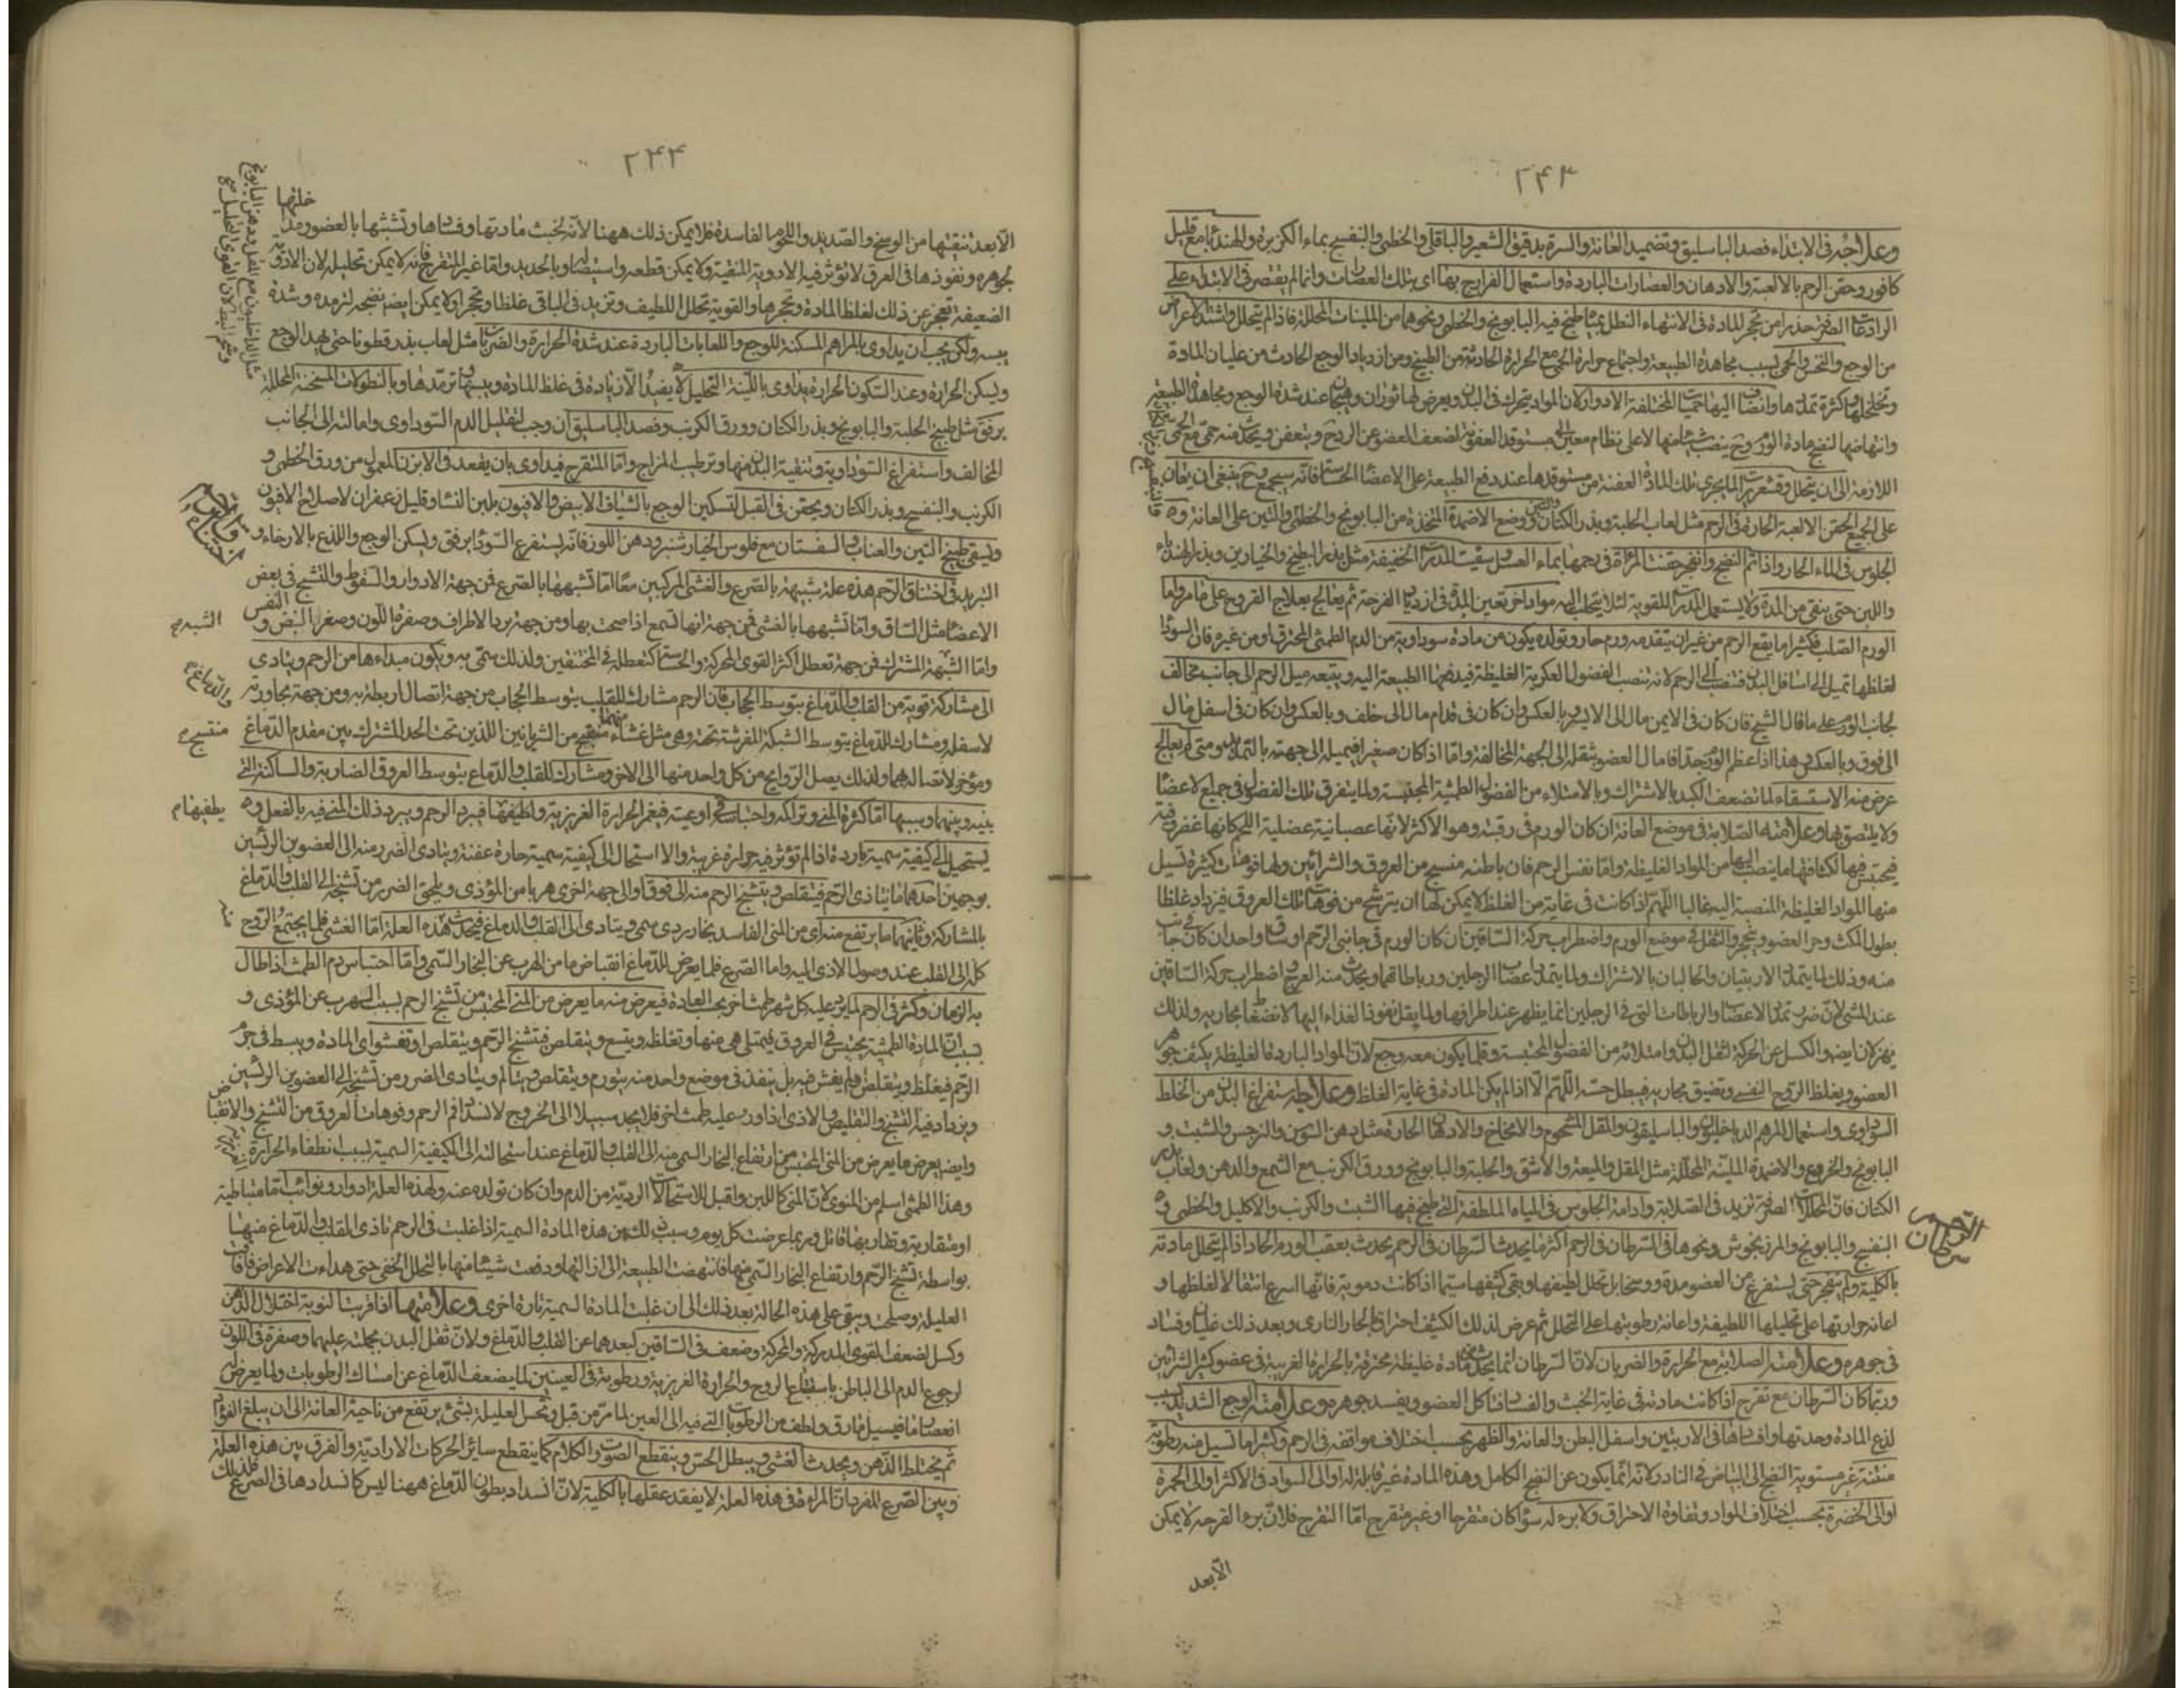 ٢٤٣
وعلاجه في الابتداء فصد الباسليق وتضميد العانة والسرة بدقيق الشعير والباقلى والخطمى والبنفسج بماء الكزبرة والهندبا مع قليل
كافور وحقن الرحم بالالعبة والادهان والعصارات الباردة واستعمال الفرازج بها اى بتلك العصارات وانما لم يقتصر في الابتداء على
الرادعات الصرفة حذرا من تحجر المادة في الانتهاء النطل بمياه طبخ فيه البابونج والخطمى ونحوهما من الملينات المحللة فاذا لم يتحلل واشتد الاعراض
من الوجع والنخس والحمى بسبب مجاهدة الطبيعة واجتماع حرارة الحمى مع الحرارة الحادثة من الطبخ ومن ازدياد الوجع الحادث من غليان المادة
وتخلخلها وكثرة تمددها وانضاف اليها حميات المختلفة الادوار لان المواد يتحرك في البدن ويعرض لها ثوران وهيجان عند شدة الوجع ومجاهدة الطبيعة
وانتهاضها لنضج مادة الورم وح ينصب شئ منها لا على نظام معين الى مستوقد العفونة لضعف العضو عن الردع ويتعفن ويحدث منه حمى مع الحمى
اللازمة الى ان يتحلل وقشعريرات لما يجرى تلك المادة العفنة من مستوقدها عند دفع الطبيعة على الاعضاء الحساسة فانه سيجمع وح ينبغى ان يعان
على الجمع الحقن الالعبة الحارة في الرحم مثل لعاب الحلبة وبذر الكتان ووضع الاضمدة المتخذة من البابونج والخطمى والتين على العانة و
الجلوس في الماء الحار واذا تم النضج وانفجر حقنت المرأة في رحمها بماء العسل وسقيت المدرات الخفيفة مثل بذر البطيخ والخيارين وبذر الهندباء
واللبن حتى ينقى من المدة ولا يستعمل المدرات القوية لئلا يتحلب اليه مواد اخر تعين المدة في ازدياد القرحة ثم يعالج بعلاج القروح على ما مر واما
الورم الصلب فكثيرا ما يقع الرحم من غير ان يتقدمه ورم حار وتولده يكون من مادة سوداوية من الدم الطمثى المحترق او من غيره فان السوداء
لغلظها تميل الى اسافل البدن فتنصب الى الرحم لانه تنصب الفضول العكرية الغليظة فيدفعها الطبيعة اليه ويتبعه ميل الرحم الى جانب مخالف
لجانب الورم على ما قال الشيخ فان كان في الايمن مال الى الايسر وبالعكس وان كان في قدام مال الى خلف وبالعكس وان كان في اسفل مال
الى فوق وبالعكس هذا اذا عظم الورم جدا فامال العضو بثقله الى الجهة المخالفة واما اذا كان صغيرا فيميله الى جهته بالتمديد ومتى لم يعالج
عرض منه الاستسقاء لما تضعف الكبد بالاشتراك وبالامتلاء من الفضول الطمثية المحتبسة ولما يتفرق تلك الفضول في جميع الاعضاء
ولا يلتصق بها وعلامته الصلابة في موضع العانة ان كان الورم في رقبته وهو الاكثر لانها عصبانية عضلية اللحم كانها غضروفية
فيحتبس فيها لكثافتها ما ينصب اليها من المواد الغليظة واما نفس الرحم فان باطنه منسج من العروق والشرائين ولها فوهات كثيرة تسيل
منها المواد الغليظة المنصبة اليه غالبا اللهم اذا كانت في غاية من الغلظ لا يمكن لها ان يترشح من فوهات تلك العروق فيزداد غلظا
بطول المكث وحر العضو ويتحجر والثقل في موضع الورم واضطراب حركة الساقين ان كان الورم في جانبى الرحم او ساق واحد ان كان في جانب
منه وذلك لما يتمدد الاربتيان والحالبان بالاشتراك ولما يتمدد اعصاب الرجلين ورباطاتهما ويحدث منه العرج واضطراب حركة الساقين
عند المشى لان ضرر تمدد الاعصاب والرباطات التى في الرجلين انما يظهر عند اطرافها ولما يقل نفوذ الغذاء اليها لانضغاط مجاريه ولذلك
يهزلان ايضا والكسل عن الحركة لثقل البدن وامتلائه من الفضول المحتبسة وقلما يكون معه وجع لان المواد الباردة الغليظة يكثف جوهر
العضو ويغلظ الروح النفسى وتضيق مجاريه فيبطل حسه اللهم الا اذا لم يكن المادة في غاية الغلظ وعلاجه استفراغ البدن من الخلط
السوداوى واستعمال المرهم الداخليون والباسليقون والمقل والشحوم والامخاخ والادهان الحارة مثل دهن السوسن والنرجس والشبت و
البابونج والخروع والاضمدة الملينة المحللة مثل المقل والميعة والاشق والحلبة والبابونج وورق الكرنب مع الشمع والدهن ولعاب بذر
الكتان فان المحللات الصرفة تزيد في الصلابة وادامة الجلوس في المياه الملطفة التى طبخ فيها الشبت والكرنب والاكليل والخطمى و
البنفسج والبابونج والمرزنجوش ونحوها في السرطان في الرحم اكثر ما يحدث السرطان في الرحم يحدث بعقب الورم الحار اذا لم يتحلل مادته
بالكلية ولم ينفجر حتى يستفرغ من العضو مدة ووسخا بل تحلل لطيفها وبقى كثيفها سيما اذا كانت دموية فانها اسرع انتقالا لغلظها و
اعانة حرارتها على تحليلها اللطيفة واعانة رطوبتها على التحلل ثم عرض لذلك الكثيف احتراق بالحار النارى وبعد ذلك غليان وفساد
في جوهره وعلامته الصلابة مع الحرارة والضربان لان السرطان انما يحدث من مادة غليظة محترقة بالحرارة الغريبة في عضو كثير الشرائين
وربما كان السرطان مع تقرح اذا كانت مادته في غاية الخبث والفساد فتاكل العضو ويفسد جوهره وعلامته الوجع الشديد بسبب
لذع المادة وحدتها وافسادها في الاربتين واسفل البطن والعانة والظهر بحسب اختلاف مواقعه في الرحم وكثيرا ما تسيل منه رطوبة
منتنة غير مستوية النضج الى البياض في النادر لانه انما يكون عن النضج الكامل وهذه المادة غير قابلة له او الى السواد في الاكثر او الى الحمرة
او الى الخضرة بحسب اختلاف المواد وتفاوة الاحتراق ولا برء له سواء كان متقرحا او غير متقرح اما المتقرح فلان برء القرحه لا يمكن
الا بعد
السرطان
٢٤٤
الا بعد تنقيتها من الوسخ والصديد واللحوم الفاسدة فلا يمكن ذلك ههنا لانه لخبث مادتها وفسادها وتشبثها بالعضو ومداخلتها
لجوهره ونفوذها في العرق لا تؤثر فيه الادوية المنقية ولا يمكن قطعه واستيصاله او بالحديد واما غير المتقرح فانه لا يمكن تحليله لان الادوية
الضعيفة تعجز عن ذلك لغلظ المادة وتحجرها والقوية تحلل اللطيف وتزيد في الباقى غلظا وتحجرا ولا يمكن ايضا نضجه لترمده وشدة
يبسه ولكن يجب ان يداوى بالمراهم المسكنة للوجع واللعابات الباردة عند شدة الحرارة والضربان مثل لعاب بذر قطونا حتى يهدأ الوجع
ويسكن الحرارة وعند السكون الحرارة يداوى باللينة التحليل لئلا يفيد الا زيادة في غلظ المادة ويبسها وترمدها وبالنطولات المسخنة المحللة
برفق مثل طبيخ الحلبة والبابونج وبذر الكتان وورق الكرنب وفصد الباسليق ان وجب لتقليل الدم السوداوى وامالته الى الجانب
المخالف واستفراغ السوداوية وتنقية البدن منها وترطيب المزاج واما المتقرح فيداوى بان يقعد في الابزن المعمول من ورق الخطمى و
الكرنب والبنفسج وبذر الكتان ويحقن في القبل لتسكين الوجع بالشياف الابيض والافيون بلبن النساء وقليل زعفران لاصلاح الافيون
ويسقى طبيخ التين والعناب والسفستان مع فلوس الخيارشنبر ودهن اللوز فانه يستفرغ السوداء برفق ويسكن الوجع واللذع بالارخاء و
التبريد في اختناق الرحم هذه علة شبيهة بالصرع والغشى المركبين معا اما تشبهها بالصرع فمن جهة الادوار والسقوط والتشنج في بعض
الاعضاء مثل الساق واما تشبهها بالغشى فمن جهة انها تسمع اذا صحت بها ومن جهة برد الاطراف وصفرة اللون وصغر النبض والنفس
واما الشبهة المشترك فمن جهة تعطل اكثر القوى المحركة والحساسة كتعطله في المختنقين ولذلك سمى به ويكون مبداءها من الرحم ويتادى
الى مشاركة قوية من القلب والدماغ بتوسط الحجاب فان الرحم مشارك للقلب بتوسط الحجاب من جهة اتصال اربطة به ومن جهة مجاورته
لاسفله ومشارك للدماغ بتوسط الشبكة المفرشة تحته وهى مثل غشاء منتسج من الشريانين اللذين تحت الحد المشترك بين مقدم الدماغ
ومؤخر لاتصاله بهما ولذلك يصل الروايح من كل واحد منهما الى الاخر ومشارك للقلب والدماغ بتوسط العروق الضاربة والساكنة التى
بينه وبينهما وسببها اما كثرة المنى وتراكمه واحتباسه في اوعيته فيغمر الحرارة الغريزية ولطيفها فيبرد الرحم ويبرد ذلك المنى فيه بالفعل و
يستحيل الى كيفية سمية باردة اذا لم تؤثر فيه حرارة غريبة والا استحال الى كيفية سمية حارة عفنة ويتادى الضرر منه الى العضوين الرئيسين
بوجهين احدهما ما يتاذى الرحم فيتقلص ويتشنج الرحم منه الى فوق او الى جهة اخرى هربا من المؤذى ويلحق الضرر من تشنجه الى القلب والدماغ
بالمشاركة وثانيهما ما يرتفع منه اى من المنى الفاسد بخار ردى سمى ويتادى الى القلب والدماغ فيحدث هذه العلة اما الغشى فلما يجتمع الروح
كله الى القلب عند وصول الاذى اليه واما الصرع فلما يعرض للدماغ انقباض ما من الهرب عن البخار السمى واما احتباس دم الطمث اذا طال
به الزمان وكثر في الرحم لما يرد عليه كل شهر طمث اخر بحسب العادة فيعرض منه ما يعرض من المنى المحتبس من تشنج الرحم بسبب الهرب عن المؤذى و
بسبب ان المادة الطمثية يحتبس في العروق فيمتلى هى منها وتغلظ ويتسع ويتقلص فيتشنج الرحم ويتقلص او تغشو اى المادة ويبسط في جرم
الرحم فيغلظ ويتقلص فلم يغش فيه بل ينفذ في موضع واحد منه يتورم ويتقلص ويتالم ويتادى الضرر من تشنجه الى العضوين الرئيسين
ويزداد فيه التشنج والتقليص والاذى اذا ورد عليه طمث اخر فلا يجد سبيلا الى الخروج لانسداد فم الرحم وفوهات العروق من التشنج والانقباض
وايضا يعرض ما يعرض من المنى المحتبس من ارتفاع البخار السمى منه الى القلب والدماغ عند استحالته الى الكيفية السمية بسبب انطفاء الحرارة
وهذا الطمثى اسلم من المنوى لان المنى كاللبن واقبل للاستحالات الردية من الدم وان كان تولده عنه ولهذه العلة ادوار ونوائب اما متباطية
او متقاربة وتقاربها قاتل وربما عرضت كل يوم وسبب ذلك ان هذه المادة السمية اذا غلبت في الرحم تاذى القلب والدماغ منها
بواسطة تشنج الرحم وارتفاع البخار السمى منها فانتهضت الطبيعة الى ازالتها ودفعت شيئا منها بالتحلل الخفى حتى هداءت الاعراض فافاقت
العليلة وصلحت ويبقى على هذه الحالة بعد ذلك الى ان غلبت المادة السمية تارة اخرى وعلامتها اذا قربت النوبة اختلال الذهن
وكسل لضعف القوى المدركة والمحركة وضعف في الساقين لبعدهما عن القلب والدماغ ولان ثقل البدن بجملته عليهما وصفرة في اللون
لرجوع الدم الى الباطن باستتباع الروح والحرارة الغريزية ورطوبة في العينين لما يضعف الدماغ عن امساك الرطوبات ولما يعرض له
انعصار ما فيسيل ما رق ولطف من الرطوبات التى فيه الى العين لما مر من قبل وتحس العليلة بشئ يرتفع من ناحية العانة الى ان يبلغ الفؤاد
ثم يختلط الذهن ويحدث الغشى ويبطل الحس وينقطع الصوت والكلام كما ينقطع سائر الحركات الارادية والفرق بين هذه العلة
وبين الصرع المفرد ان المراءة في هذه العلة لا يفقد عقلها بالكلية لان انسداد بطون الدماغ ههنا ليس كانسدادها في الصرع فلذلك
اختناق الرحم
الشبه م
والدماغ م
منتسج م
يطفيها م